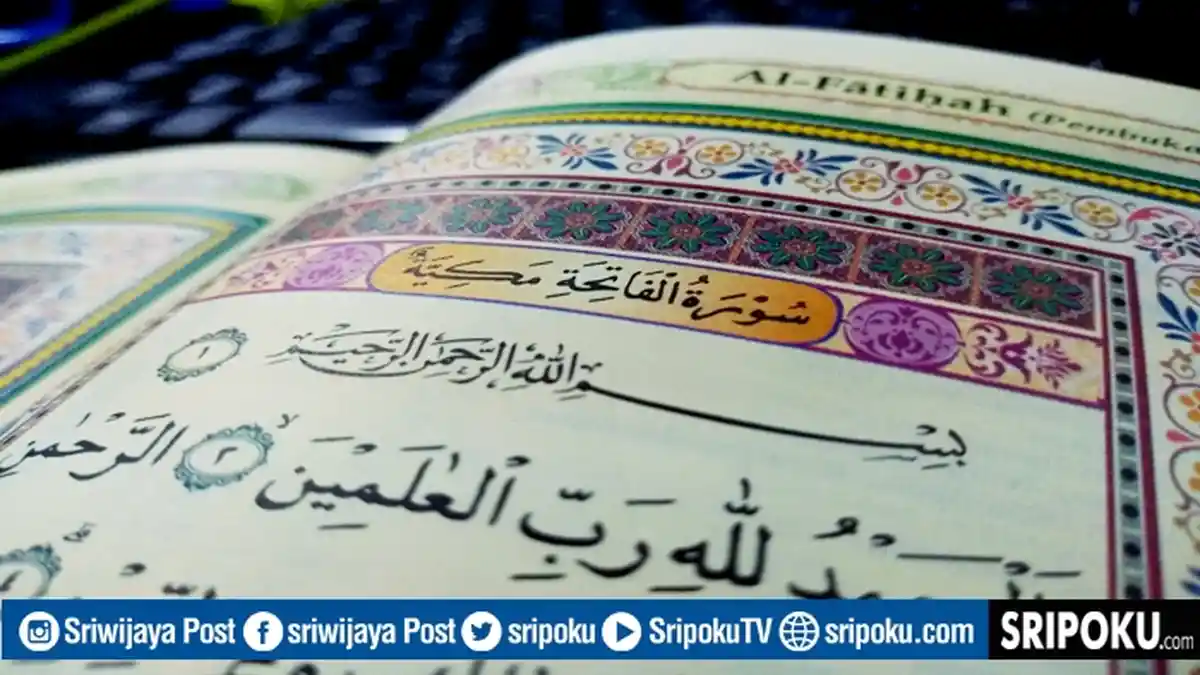 Al-Fatihah
سُوْرَةُ الْفَاتِحَةِ مَكِيَّة
بِسْمِ اللّٰهِ الرَّحْمٰنِ الرَّحِيْمِ ١
لِلّٰهِ رَبِّ الْعٰلَمِيْنَ ٢ الرَّحْمٰنِ
Sriwijaya Post sriwijaya Post sripoku SripokuTV sripoku.com SRIPOKU.com